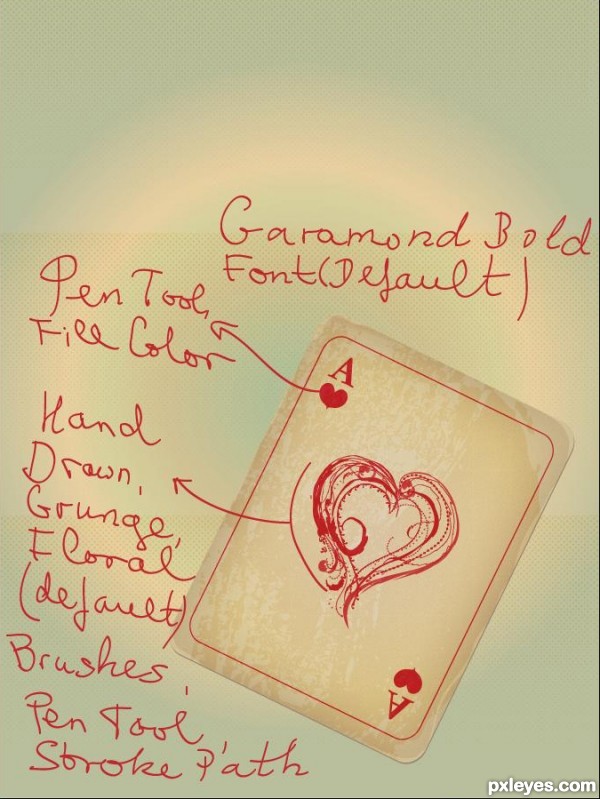 Garamond Bold
Font(Default)
Pen Tool,
Fill Color
A
Hand
Drawn,
Grunge,
Floral
(default)
Brushes,
Pen Tool,
Stroke Path
A
pxleyes.com